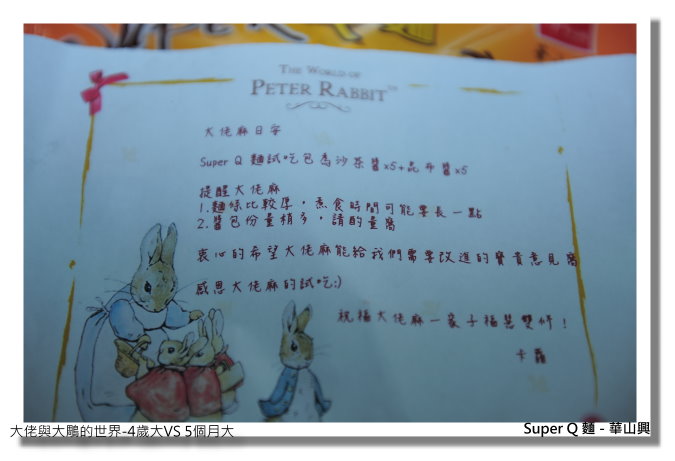 THE WORLD OF
PETER RABBIT™
大佬麻日安
Super Q 麵試吃包為沙茶醬x5+昆布醬x5
提醒大佬麻
1.麵條比較厚，煮食時間可能要長一點
2.醬包份量稍多，請酌量窩
衷心的希望大佬麻能給我們需要改進的寶貴意見窩
感恩大佬麻的試吃:)
祝福大佬麻一家子福慧雙修！
卡蘿
大佬與大鵰的世界-4歲大VS 5個月大
Super Q 麵 - 華山興